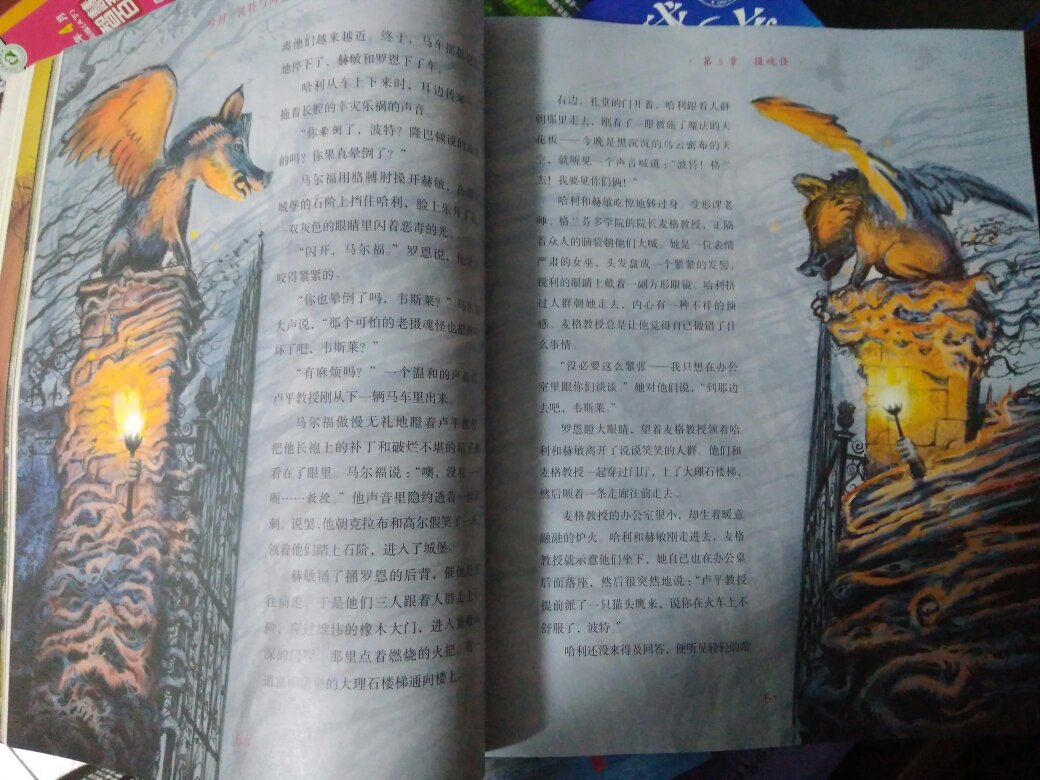 4月
离他们越来越近。终于，马车摇
地停下了，赫敏和罗恩下了车。
哈利从车上下来时，耳边传来
拖着长腔的幸灾乐祸的声音。
“你晕倒了，波特？隆巴顿说的
的吗？你果真晕倒了？”
马尔福用胳膊肘搡开赫敏，
城堡的石阶上挡住哈利，脸上乐
一双灰色的眼睛里闪着恶毒的光。
“闪开，马尔福。”罗恩说，
咬得紧紧的。
“你也晕倒了吗，韦斯莱？”
大声说，“那个可怕的老摄魂怪也把
坏了吧，韦斯莱？”
“有麻烦吗？”一个温和的声
卢平教授刚从下一辆马车里出来
马尔福傲慢无礼地瞪着卢平教授
把他长袍上的补丁和破烂不堪的
看在了眼里。马尔福说：“噢，没有
呃……教授。”他声音里隐约透着一
刺。说罢，他朝克拉布和高尔假笑了
领着他们踏上石阶，进入了城堡。
赫敏捅了捅罗恩的后背，催他
往前走。于是他们三人跟着人群走上
阶，穿过雄伟的橡木大门，进入
深的门厅。那里点着燃烧的火把，有一
道的大理石楼梯通向楼上。
66
第5章 摄魂怪
右边，礼堂的门开着，哈利跟着人群
朝那里走去，刚看了一眼被施了魔法的天
花板——今晚是黑沉沉的乌云密布的天
空，就听见一个声音喊道：“波特！格兰
杰！我要见你们俩！”
哈利和赫敏吃惊地转过身。变形课老
师、格兰芬多学院的院长麦格教授，正隔
着众人的脑袋朝他们大喊。她是一位表情
严肃的女巫，头发盘成一个紧紧的发髻，
锐利的眼睛上戴着一副方形眼镜。哈利挤
过人群朝她走去，内心有一种不祥的预
感。麦格教授总是让他觉得自己做错了什
么事情。
“没必要这么紧张——我只想在办公
室里跟你们谈谈。”她对他们说，“到那边
去吧，韦斯莱。”
罗恩瞪大眼睛，望着麦格教授领着哈
利和赫敏离开了说说笑笑的人群。他们和
麦格教授一起穿过门厅，上了大理石楼梯，
然后顺着一条走廊往前走去。
麦格教授的办公室很小，却生着暖意
融融的炉火。哈利和赫敏刚走进去，麦格
教授就示意他们坐下，她自己也在办公桌
后面落座，然后很突然地说：“卢平教授
提前派了一只猫头鹰来，说你在火车上不
舒服了，波特。”
哈利还没来得及回答，便听见轻轻的敲